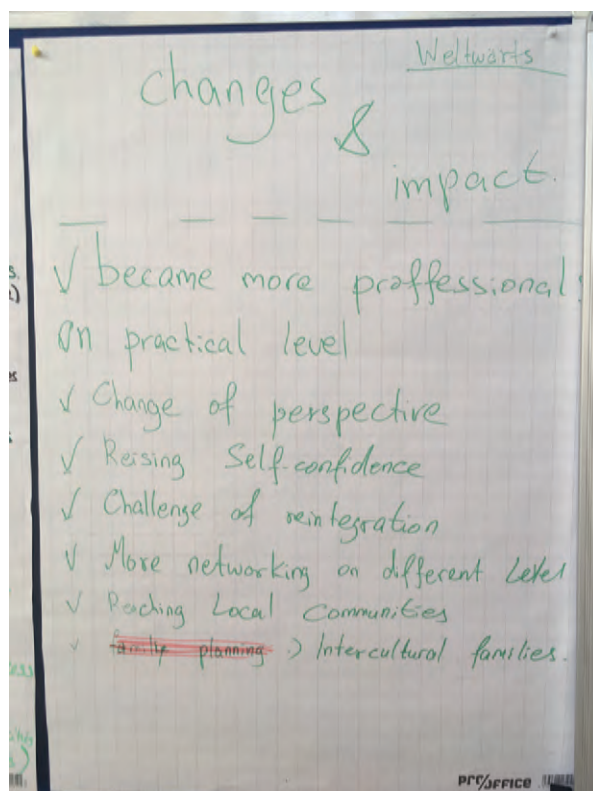 Weltwärts
changes
&
impact.
✓ became more proffessional:
On practical level
✓ Change of perspective
✓ Reising Self-confidence
✓ Challenge of reintegration
✓ More networking on different Level
✓ Reaching Local Communities
✓ family planning :) Intercultural families.